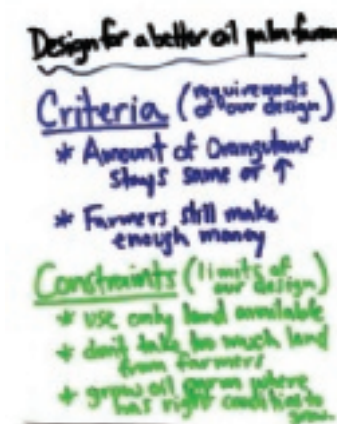 Design for a better oil palm farm
Criteria (requirements
of our design)
* Amount of Orangutans
stays same or ↑
* Farmers still make
enough money
Constraints (limits of
our design)
* use only land available
* don't take too much land
from farmers
* grow oil where
has right conditions to
grow.